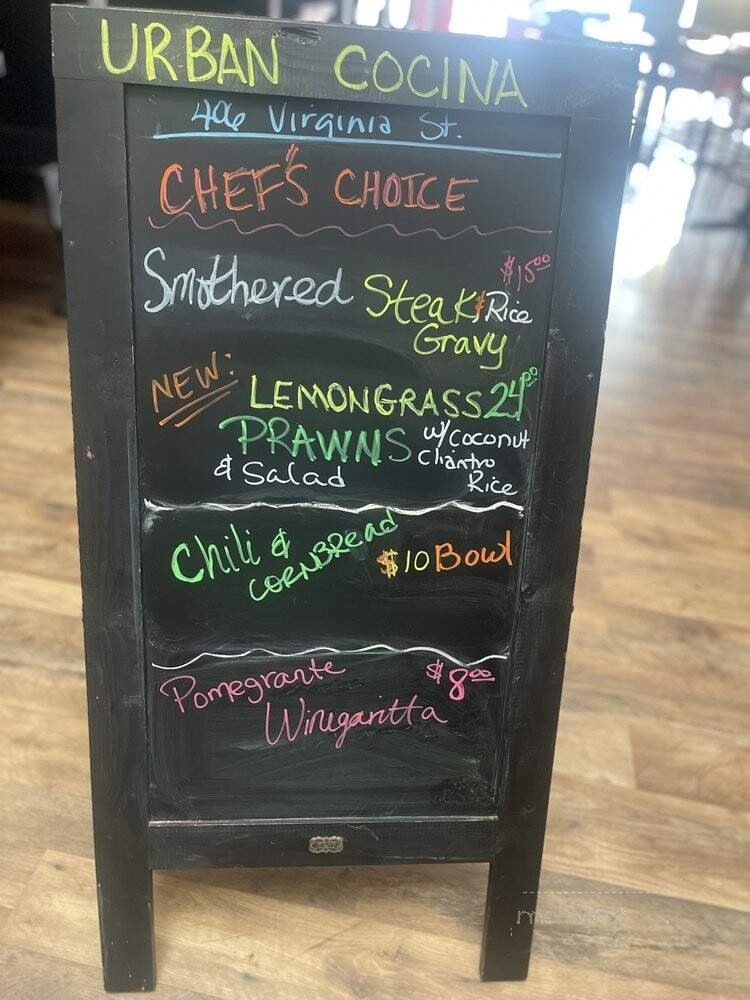 URBAN COCINA
406 Virginia St.
CHEF'S CHOICE
$15.00
Smothered Steak & Rice
Gravy
NEW: LEMONGRASS 24.00
PRAWNS w/ coconut
Cliantro
& Salad Rice
Chili &
CORNBREAD $10 Bowl
Pomegrante $8.00
Winegaritta